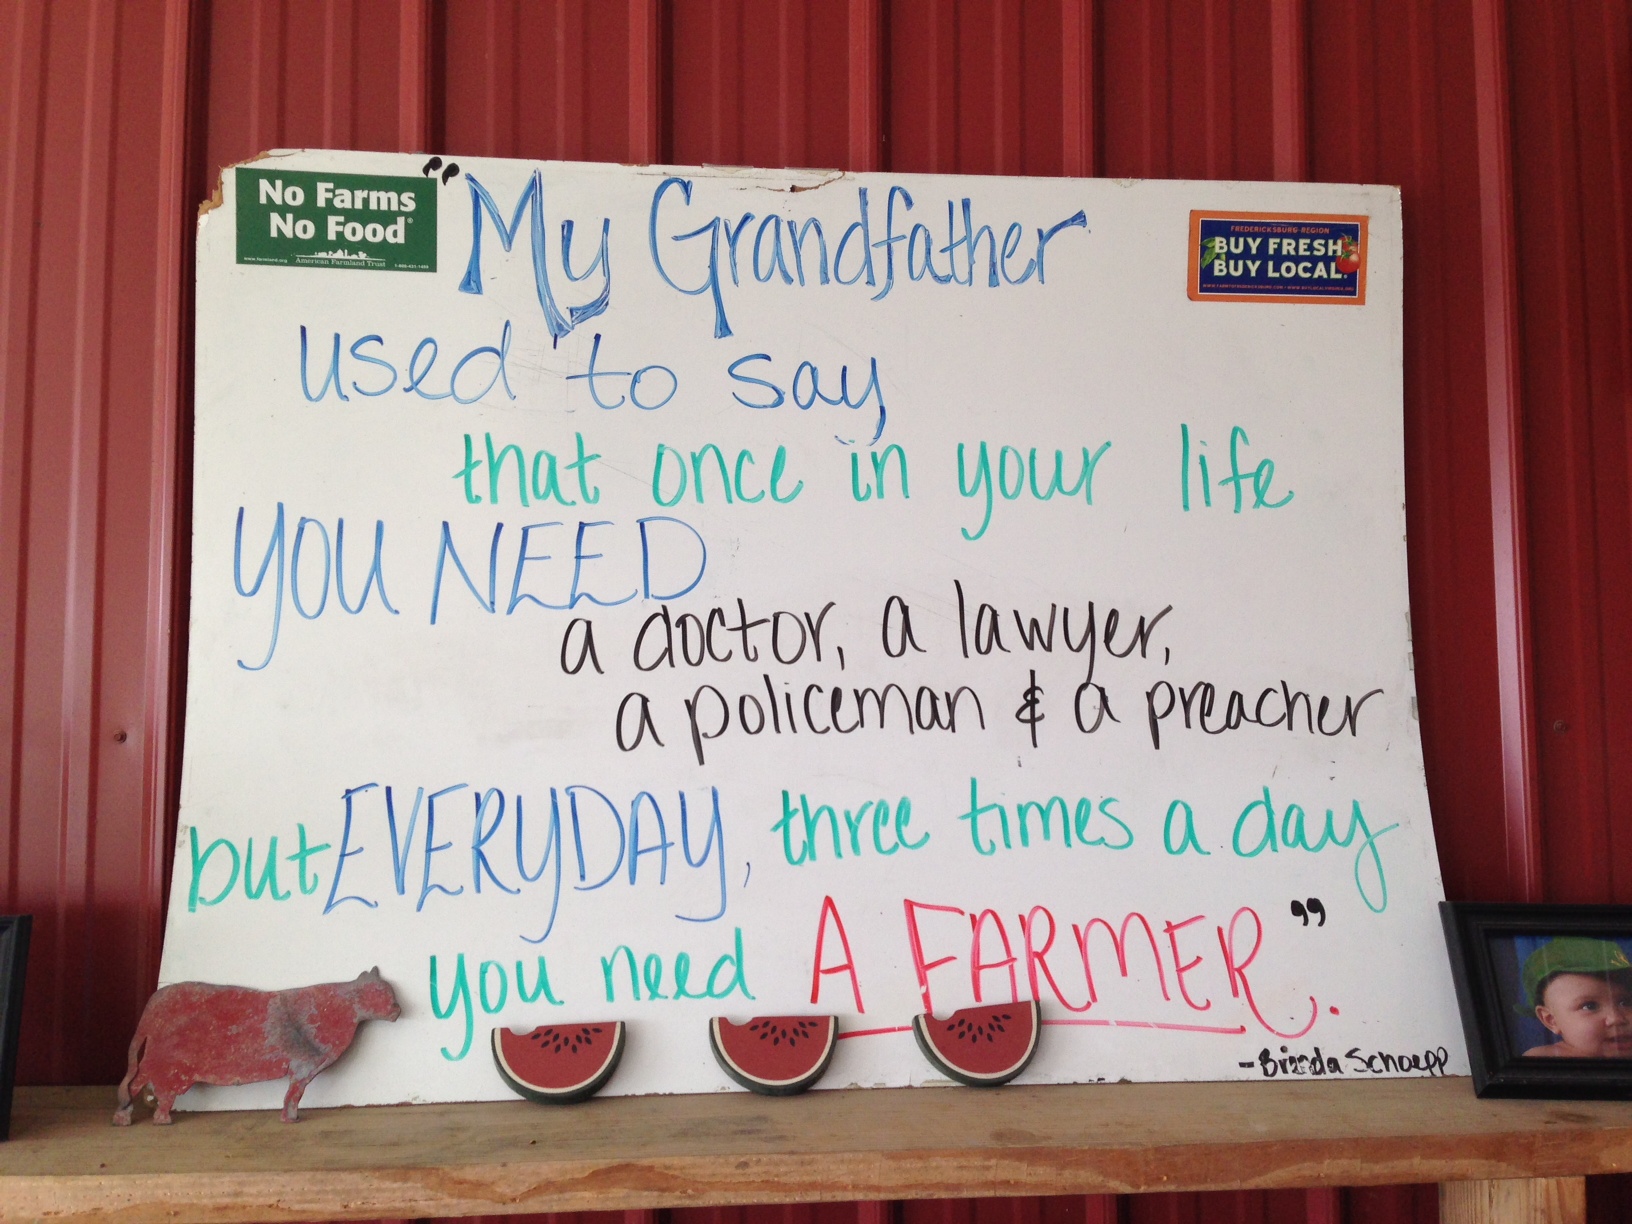 No Farms
No Food®
www.farmland.org American Farmland Trust 1-800-431-1499
FREDERICKSBURG REGION
BUY FRESH
BUY LOCAL.
"My Grandfather
used to say
that once in your life
YOU NEED
a doctor, a lawyer,
a policeman & a preacher
but EVERYDAY, three times a day
you need A FARMER".
-Brenda Schoepp